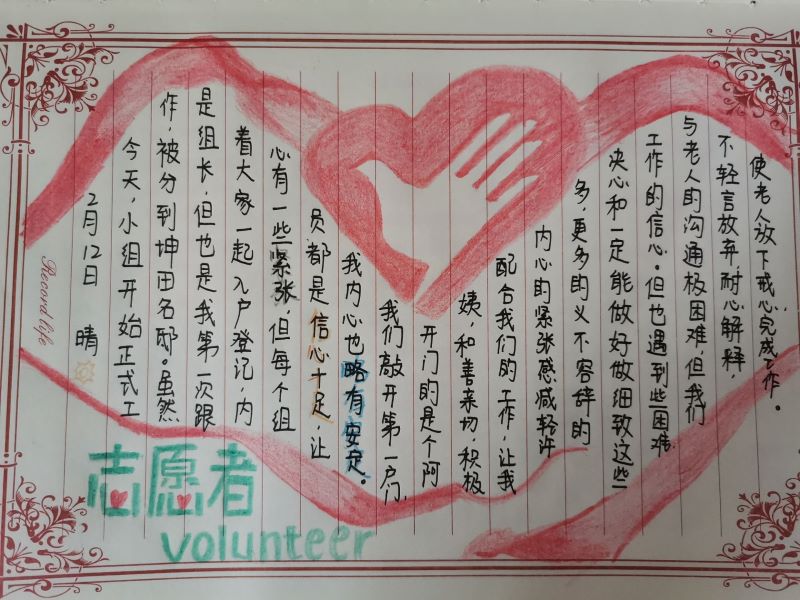 2月12日 晴
今天,小组开始正式工
作,被分到坤田名邸。虽然
是组长,但也是我第一次跟
着大家一起入户登记,内
心有一些紧张,但每个组
员都是信心十足,让
我内心也略有安定。
我们敲开第一户门,
开门的是个阿
姨,和善亲切,积极
配合我们的工作,让我
内心的紧张感减轻许
多,更多的义不容辞的
决心和一定能做好做细致这些
工作的信心。但也遇到些困难
与老人的沟通极困难,但我们
不轻言放弃,耐心解释,
使老人放下戒心完成工作。
志愿者
volunteer
Record life